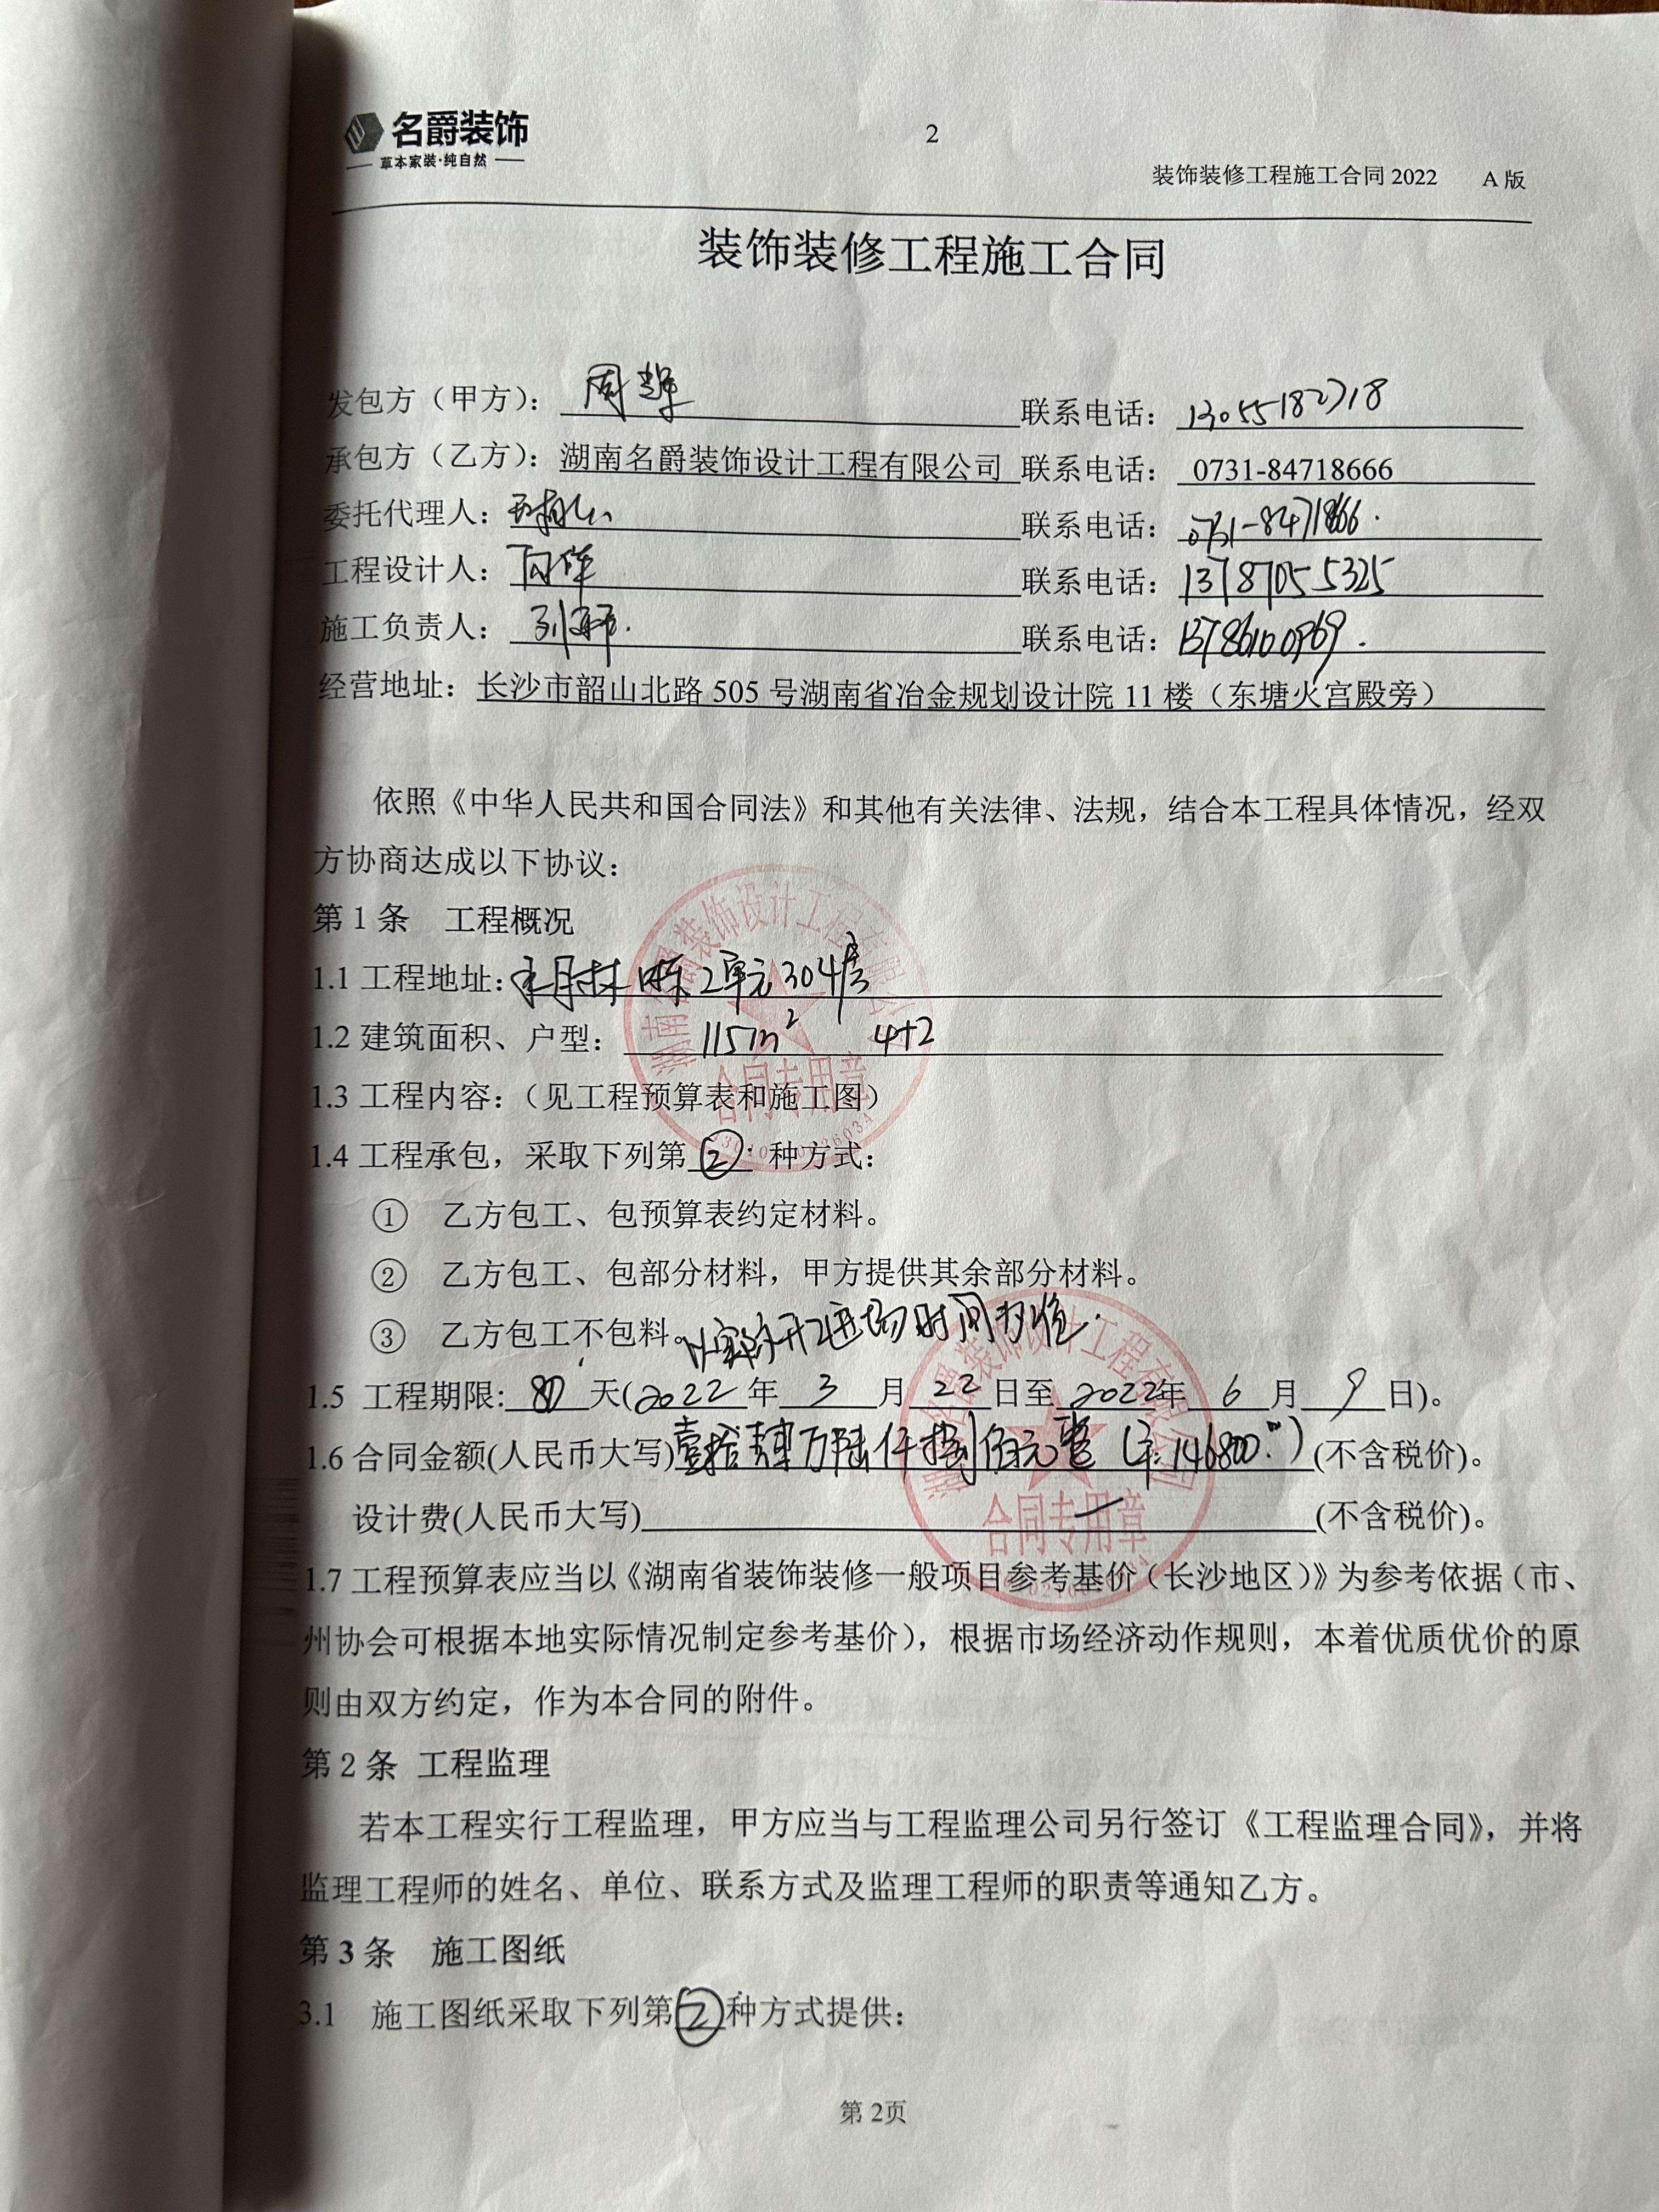 名爵装饰
草本家装·纯自然
2
装饰装修工程施工合同 2022 A 版
装饰装修工程施工合同
发包方（甲方）： 周辉 联系电话： 13055182718
承包方（乙方）：湖南名爵装饰设计工程有限公司 联系电话： 0731-84718666
委托代理人： 联系电话： 0731-84718666.
工程设计人： 向伟 联系电话： 13787055325
施工负责人： 联系电话：
经营地址：长沙市韶山北路 505 号湖南省冶金规划设计院 11 楼（东塘火宫殿旁）
依照《中华人民共和国合同法》和其他有关法律、法规，结合本工程具体情况，经双
方协商达成以下协议：
第 1 条 工程概况
1.1 工程地址： 2单元304房
1.2 建筑面积、户型： 115m² 4+2
1.3 工程内容：（见工程预算表和施工图）
1.4 工程承包，采取下列第 ② 种方式：
① 乙方包工、包预算表约定材料。
② 乙方包工、包部分材料，甲方提供其余部分材料。
③ 乙方包工不包料。
以实际开工进场时间为准.
1.5 工程期限: 80 天(2022 年 3 月 22 日至 2022年 6 月 9 日)。
1.6 合同金额(人民币大写)壹拾肆万陆仟捌佰元整 (¥:146800.00) (不含税价)。
设计费(人民币大写) — (不含税价)。
1.7 工程预算表应当以《湖南省装饰装修一般项目参考基价（长沙地区）》为参考依据（市、
州协会可根据本地实际情况制定参考基价），根据市场经济动作规则，本着优质优价的原
则由双方约定，作为本合同的附件。
第 2 条 工程监理
若本工程实行工程监理，甲方应当与工程监理公司另行签订《工程监理合同》，并将
监理工程师的姓名、单位、联系方式及监理工程师的职责等通知乙方。
第 3 条 施工图纸
3.1 施工图纸采取下列第②种方式提供：
第 2页
湖南名爵装饰设计工程有限公司
合同专用章
湖南名爵装饰设计工程有限公司
合同专用章